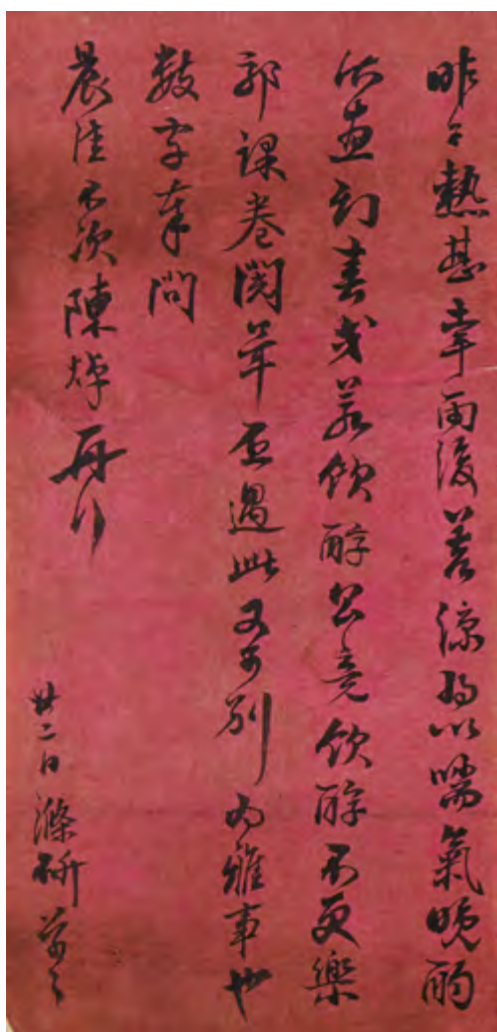 昨日熱甚幸雨後差涼得以喘氣晚酌
佐画幻喜或若飲醇公竟飲醇不更樂
耶課卷閱畢面過此又可別為雅事也
數字奉問
晨佳不次陳焯再行
廿二日滌研草々